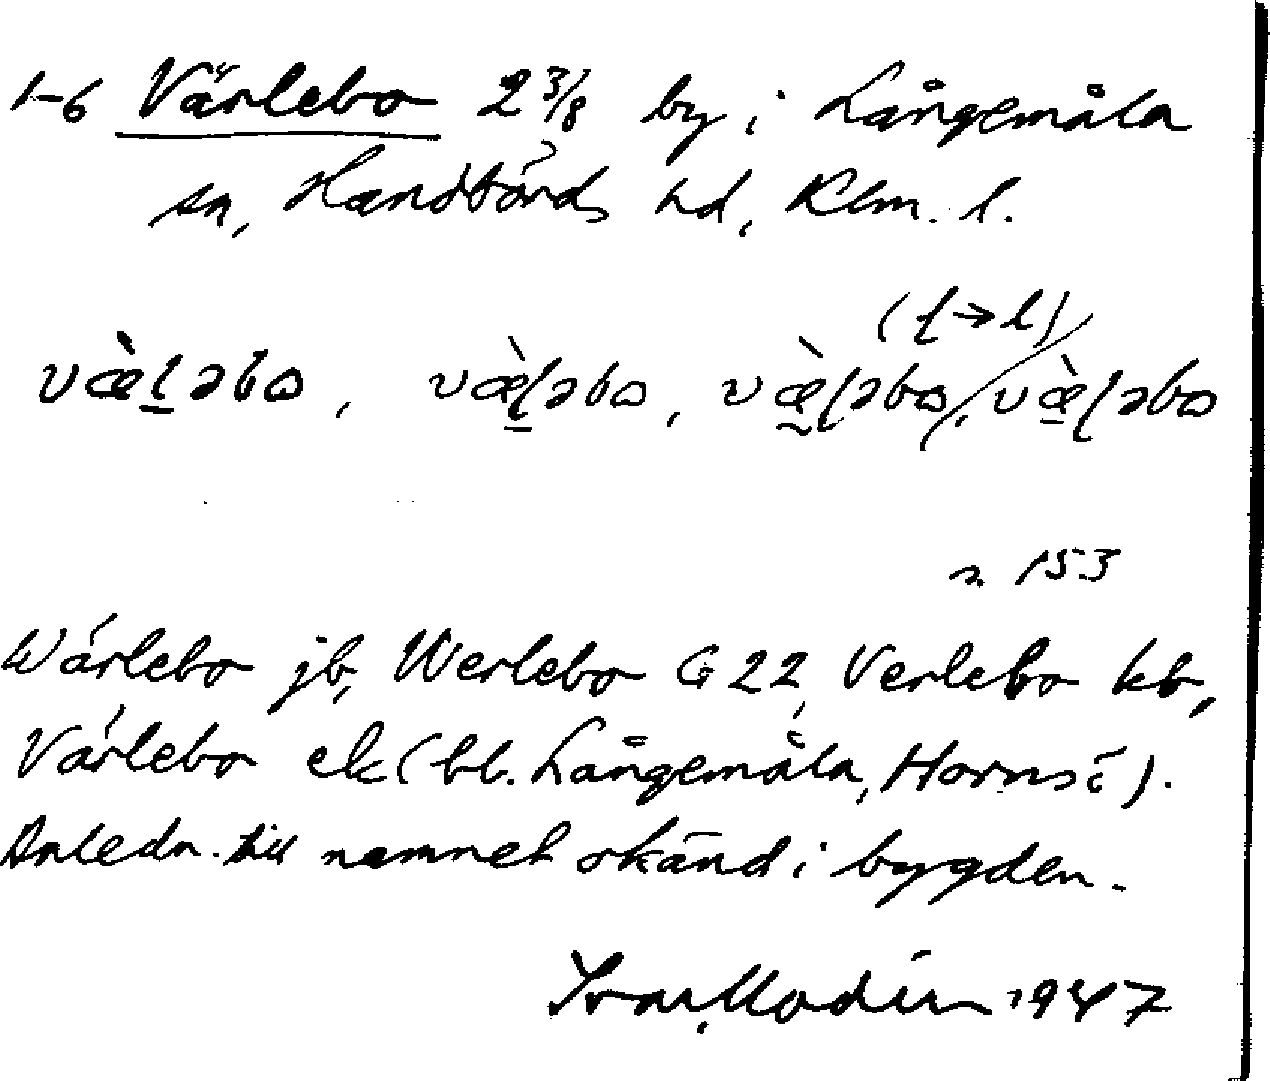 1-6 Värlebo 2 3/8 by i Långemåla
sn, Handbörds hd, Klm. l.
(ɭ→l)
væ̀lǝbo, væ̀ɭǝbo, væ̀ɭǝbo/, væ̀ɭǝbo
n. 153
Wärlebo jb, Werlebo G 22, Verlebo kb,
Värlebo ek (bl. Långemåla, Hornsö).
Anledn. till namnet okänd i bygden.
Ivar Modéer 1947